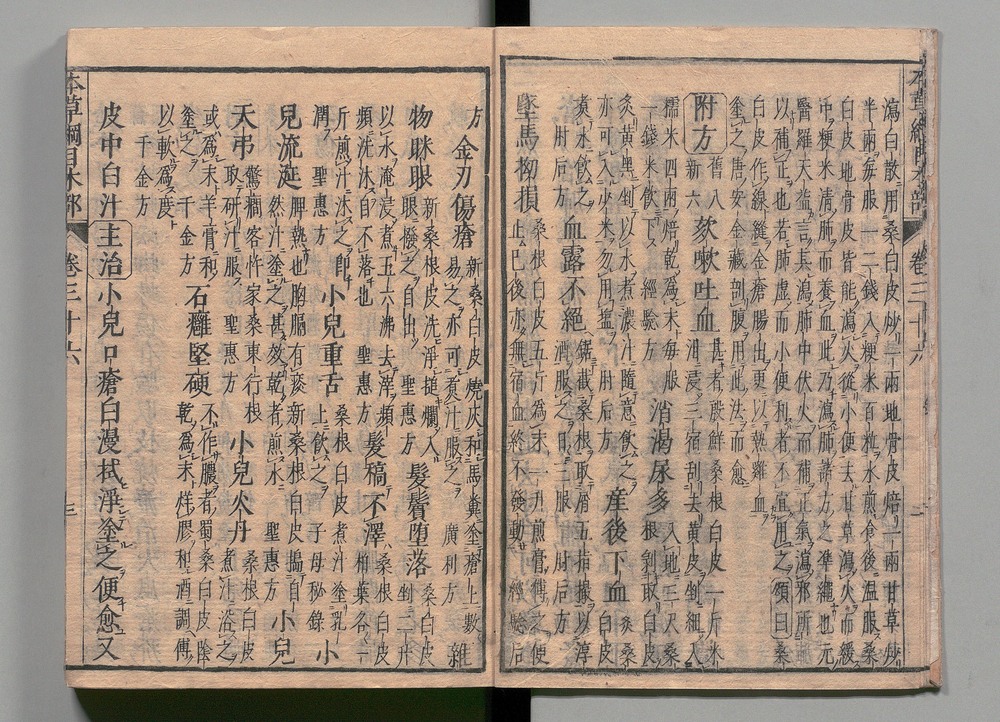 瀉白散用桑白皮炒一兩地骨皮焙一兩甘草炒
半兩每服一二錢入粳米百粒水煎食後溫服桑
白皮地骨皮皆能瀉火從小便去甘草瀉火而緩
中粳米清肺而養血此乃瀉肺諸方之準繩也元
醫羅天益言其瀉肺中伏火而補正氣瀉邪所
以補正也若肺虛而小便利者不宜用之頌曰
白皮作線縫金瘡腸出更以熱雞血
塗之唐安金藏剖腹用此法而愈
附方 舊八 新六 欬嗽吐血 甚者殷鮮桑根白皮一斤米
糯米四兩焙乾爲末每服
一錢米飲下 經驗方 消渴尿多 入地三尺桑
根剝取白皮
炙黃黑剉以水煮濃汁隨意飲之
亦可入少米勿用鹽 肘后方 產後下血 炙桑
白皮
煮水飲之 肘后方 血露不絕 鋸截桑根取屑五指撮以淳
酒服之日三服 肘后方
墜馬拗損 桑根白皮五斤爲末一升煎膏傅之便
止已後亦無宿血終不發動 經驗后
方 金刃傷瘡 新桑白皮燒灰和馬糞塗瘡上數
易之亦可煮汁服之 廣利方 雜
物眯眼 新桑根皮洗淨搥爛入
眼撥之自出 聖惠方 髮鬢墮落 桑白皮
剉二升
以水淹浸煮五六沸去滓頻
頻洗沐自不落也 聖惠方 髮槁不澤 桑根白皮
柏葉各一
斤煎汁沐之即
潤 聖惠方 小兒重舌 桑根白皮煮汁塗乳
上飲之 子母秘錄 小
兒流涎 脾熱也胸膈有痰新桑根白皮搗自
然汁塗之甚效乾者煎水 聖惠方 小兒
天弔 驚癇客忤家桑東行根
取研汁服 聖惠方 小兒火丹 桑根白皮
煮汁浴之
或爲末羊膏和
塗之 千金方 石癰堅硬 不作膿者蜀桑白皮陰
乾爲末烊膠和酒調傅
以軟爲度
千金方
皮中白汁 主治 小兒口瘡白漫拭淨塗之便愈又
本草綱目木部 卷三十六 三